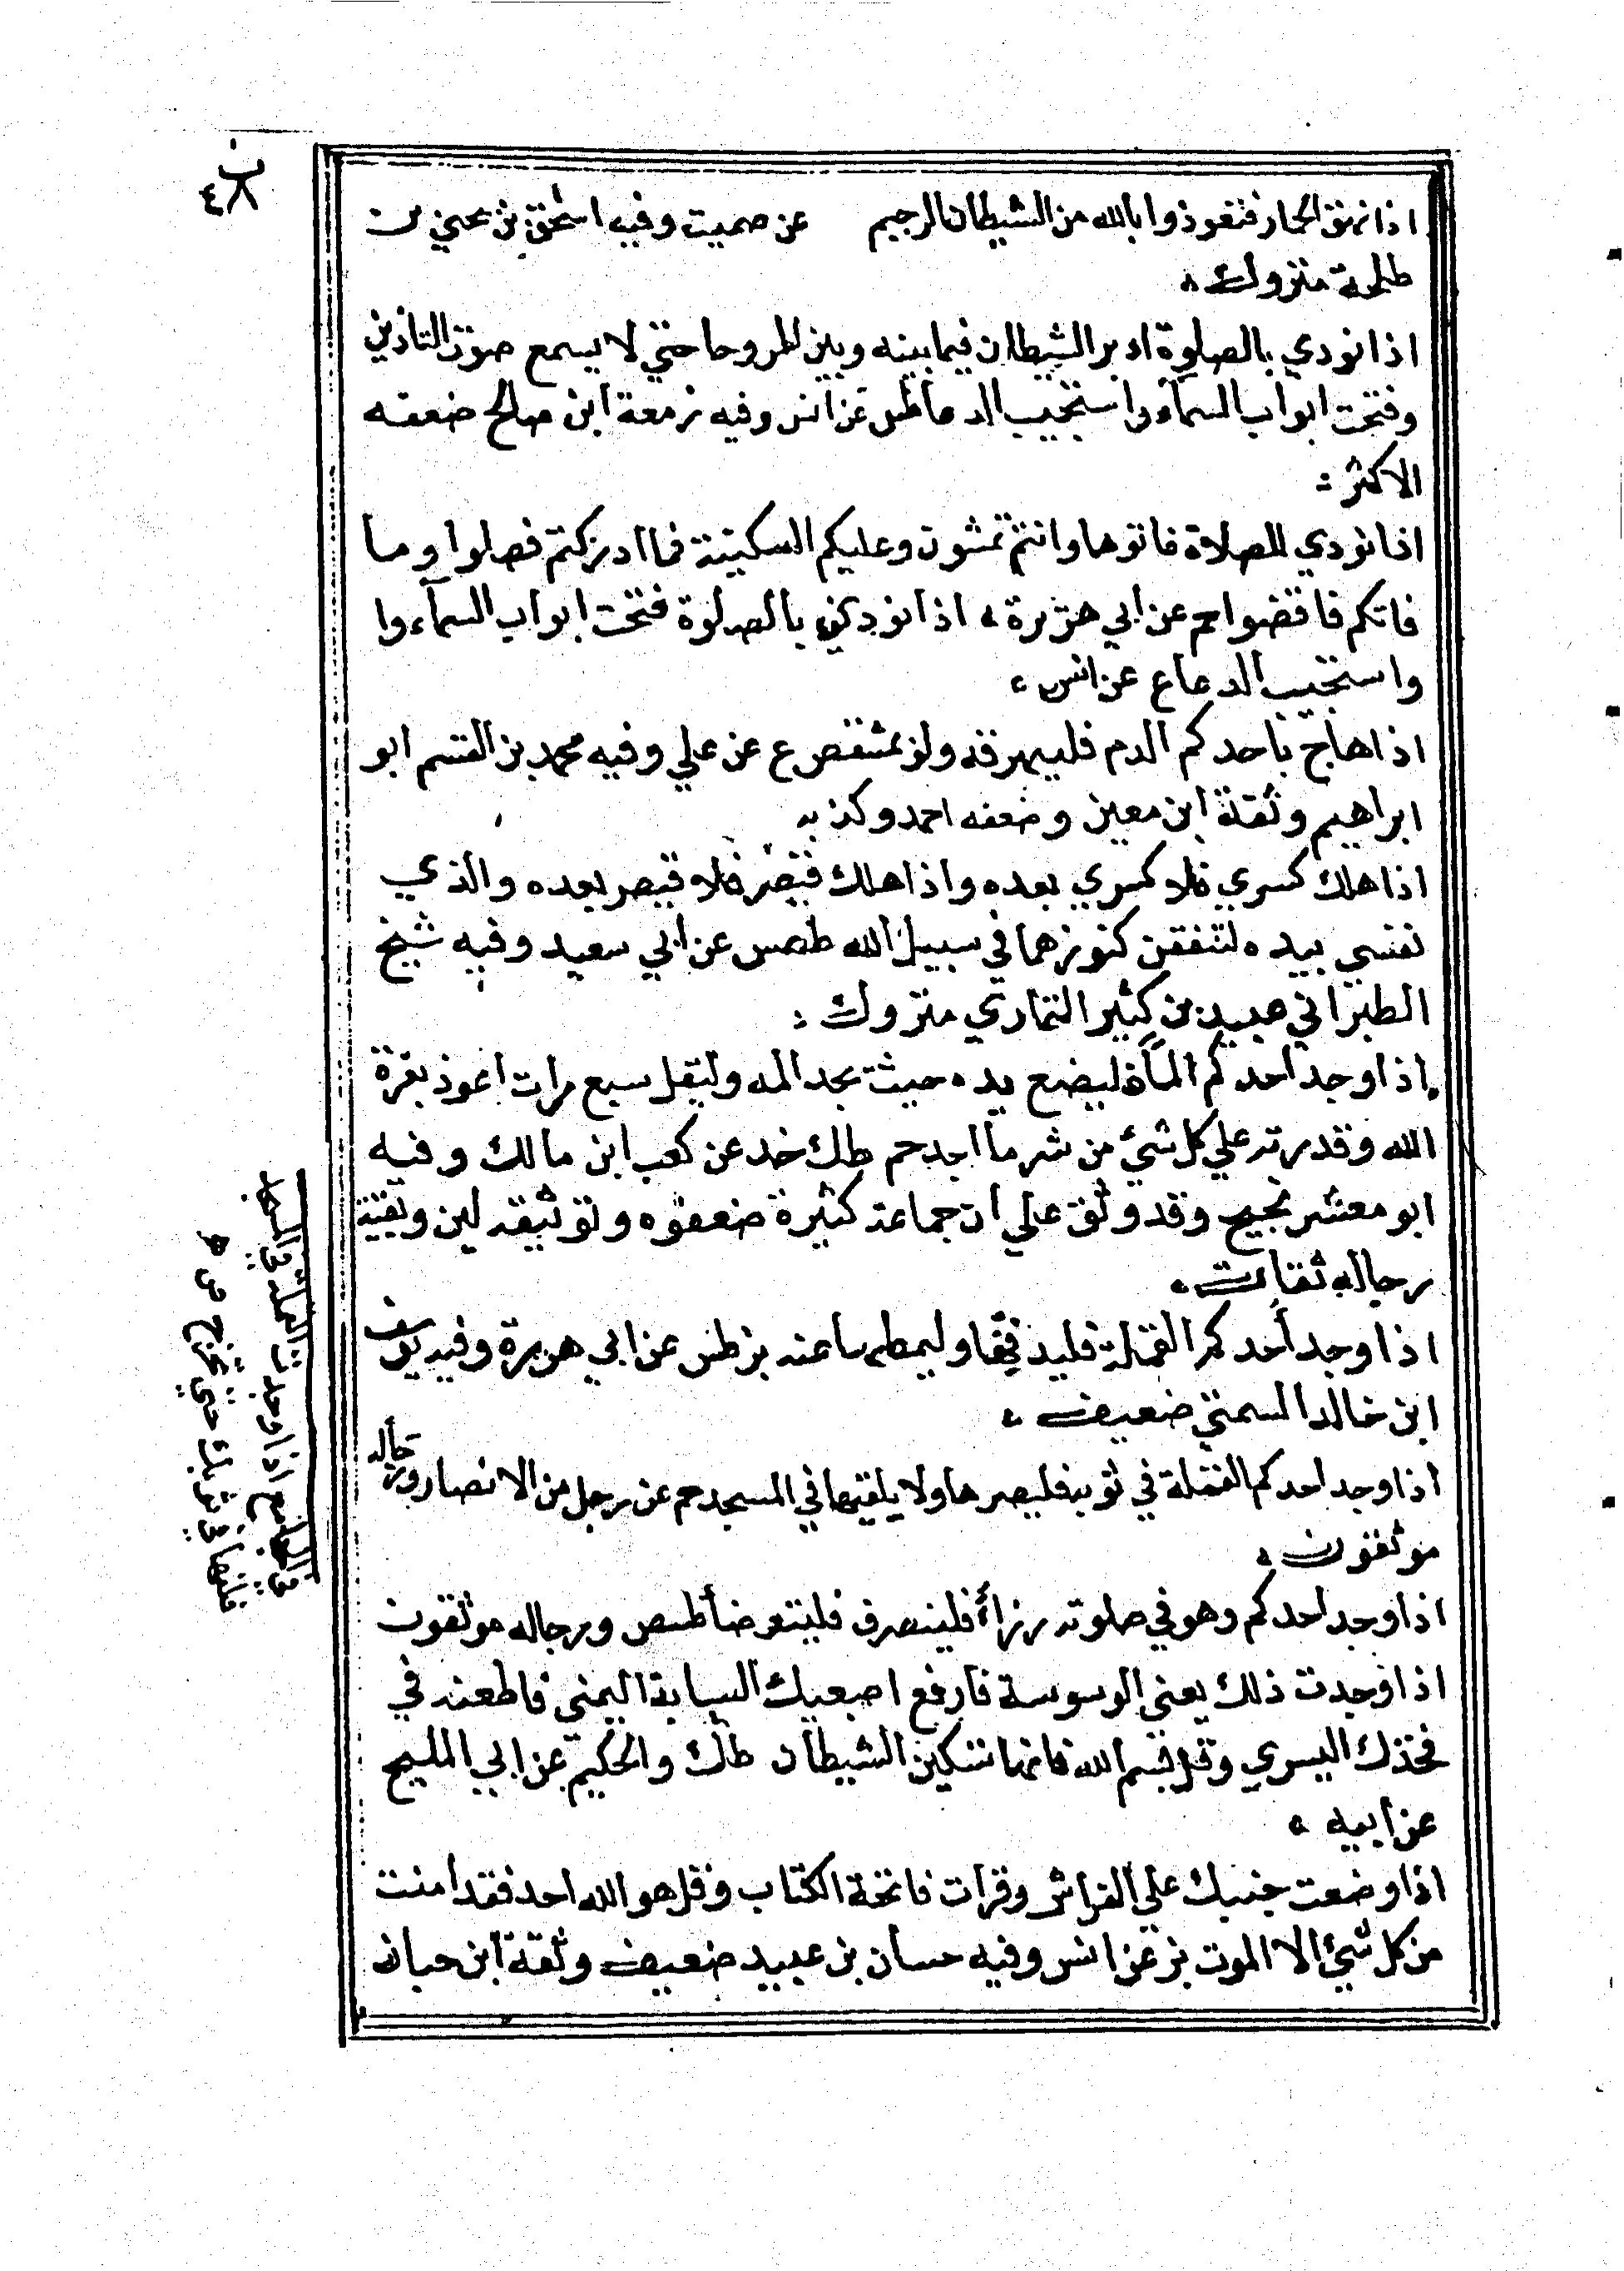 اذا نهق الحمار فتعوذوا بالله من الشيطان الرجيم عن صميت وفيه اسحق بن يحيى بن
طلحة متروك
اذا نودي بالصلوة ادبر الشيطان فيما بينه وبين الروحا حتي لا يسمع صوت التاذين
وفتحت ابواب السمآء واستجيب الدعا طس عن انس وفيه زمعة ابن صالح ضعفه
الاكثر :
اذا نودي للصلاة فاتوها وانتم تمشون وعليكم السكينة فما ادركتم فصلوا وما
فاتكم فاقضوا حم عن ابي هريرة اذا نودي بالصلوة فتحت ابواب السمآء وا
واستجيب الدعا ع عن انس
اذا هاج باحدكم الدم فليهرقه ولو بمشقص ع عن علي وفيه محمد بن القسم ابو
ابراهيم وثقة ابن معين وضعفه احمد وكذبه
اذا هلك كسري فلا كسري بعده واذا هلك قيصر فلا قيصر بعده والذي
نفسي بيده لتنفقن كنوزهما في سبيل الله طص عن ابي سعيد وفيه شيخ
الطبراني عبيد بن كثير التماري متروك :
اذا وجد احدكم الماة ليضع يده حيث يجد المه وليقل سبع مرات اعوذ بعزة
الله وقدرته علي كل شيئ من شر ما اجد حم طك خد عن كعب ابن مالك وفيه
ابو معشر نجيح وقد وثق علي ان جماعة كثيرة ضعفوه وتوثيقه لين وبقية
رجاله ثقات
اذا وجد أحدكم القملة فليدفنها وليمطها عنه بز طس عن ابي هريرة وفيه يوسف
ابن خالد السمتي ضعيف
اذا وجد احدكم القملة في ثوبه فليصرها ولا يلقيها في المسجد حم عن رجل من الانصار ورجاله
موثقون
اذا وجد احدكم وهو في صلوته رزا فلينصرف فليتوضا طس ص ورجاله موثقون
اذا وجدت ذلك يعني الوسوسة فارفع اصبعيك السبابة اليمني فاطعنه في
فخذك اليسري وقل بسم الله فانها سكين الشيطان طك والحكيم عن ابي المليح
عن ابيه
اذا وضعت جنبك علي الفراش وقرات فاتحة الكتاب وقل هو الله احد فقد امنت
من كل شيئ الا الموت بز عن انس وفيه حسان بن عبيد ضعيف وثقة ابن حبان
في الجامع اذا وجدت القملة في المسجد
فلفها في ثوبك حتي تخرج ص